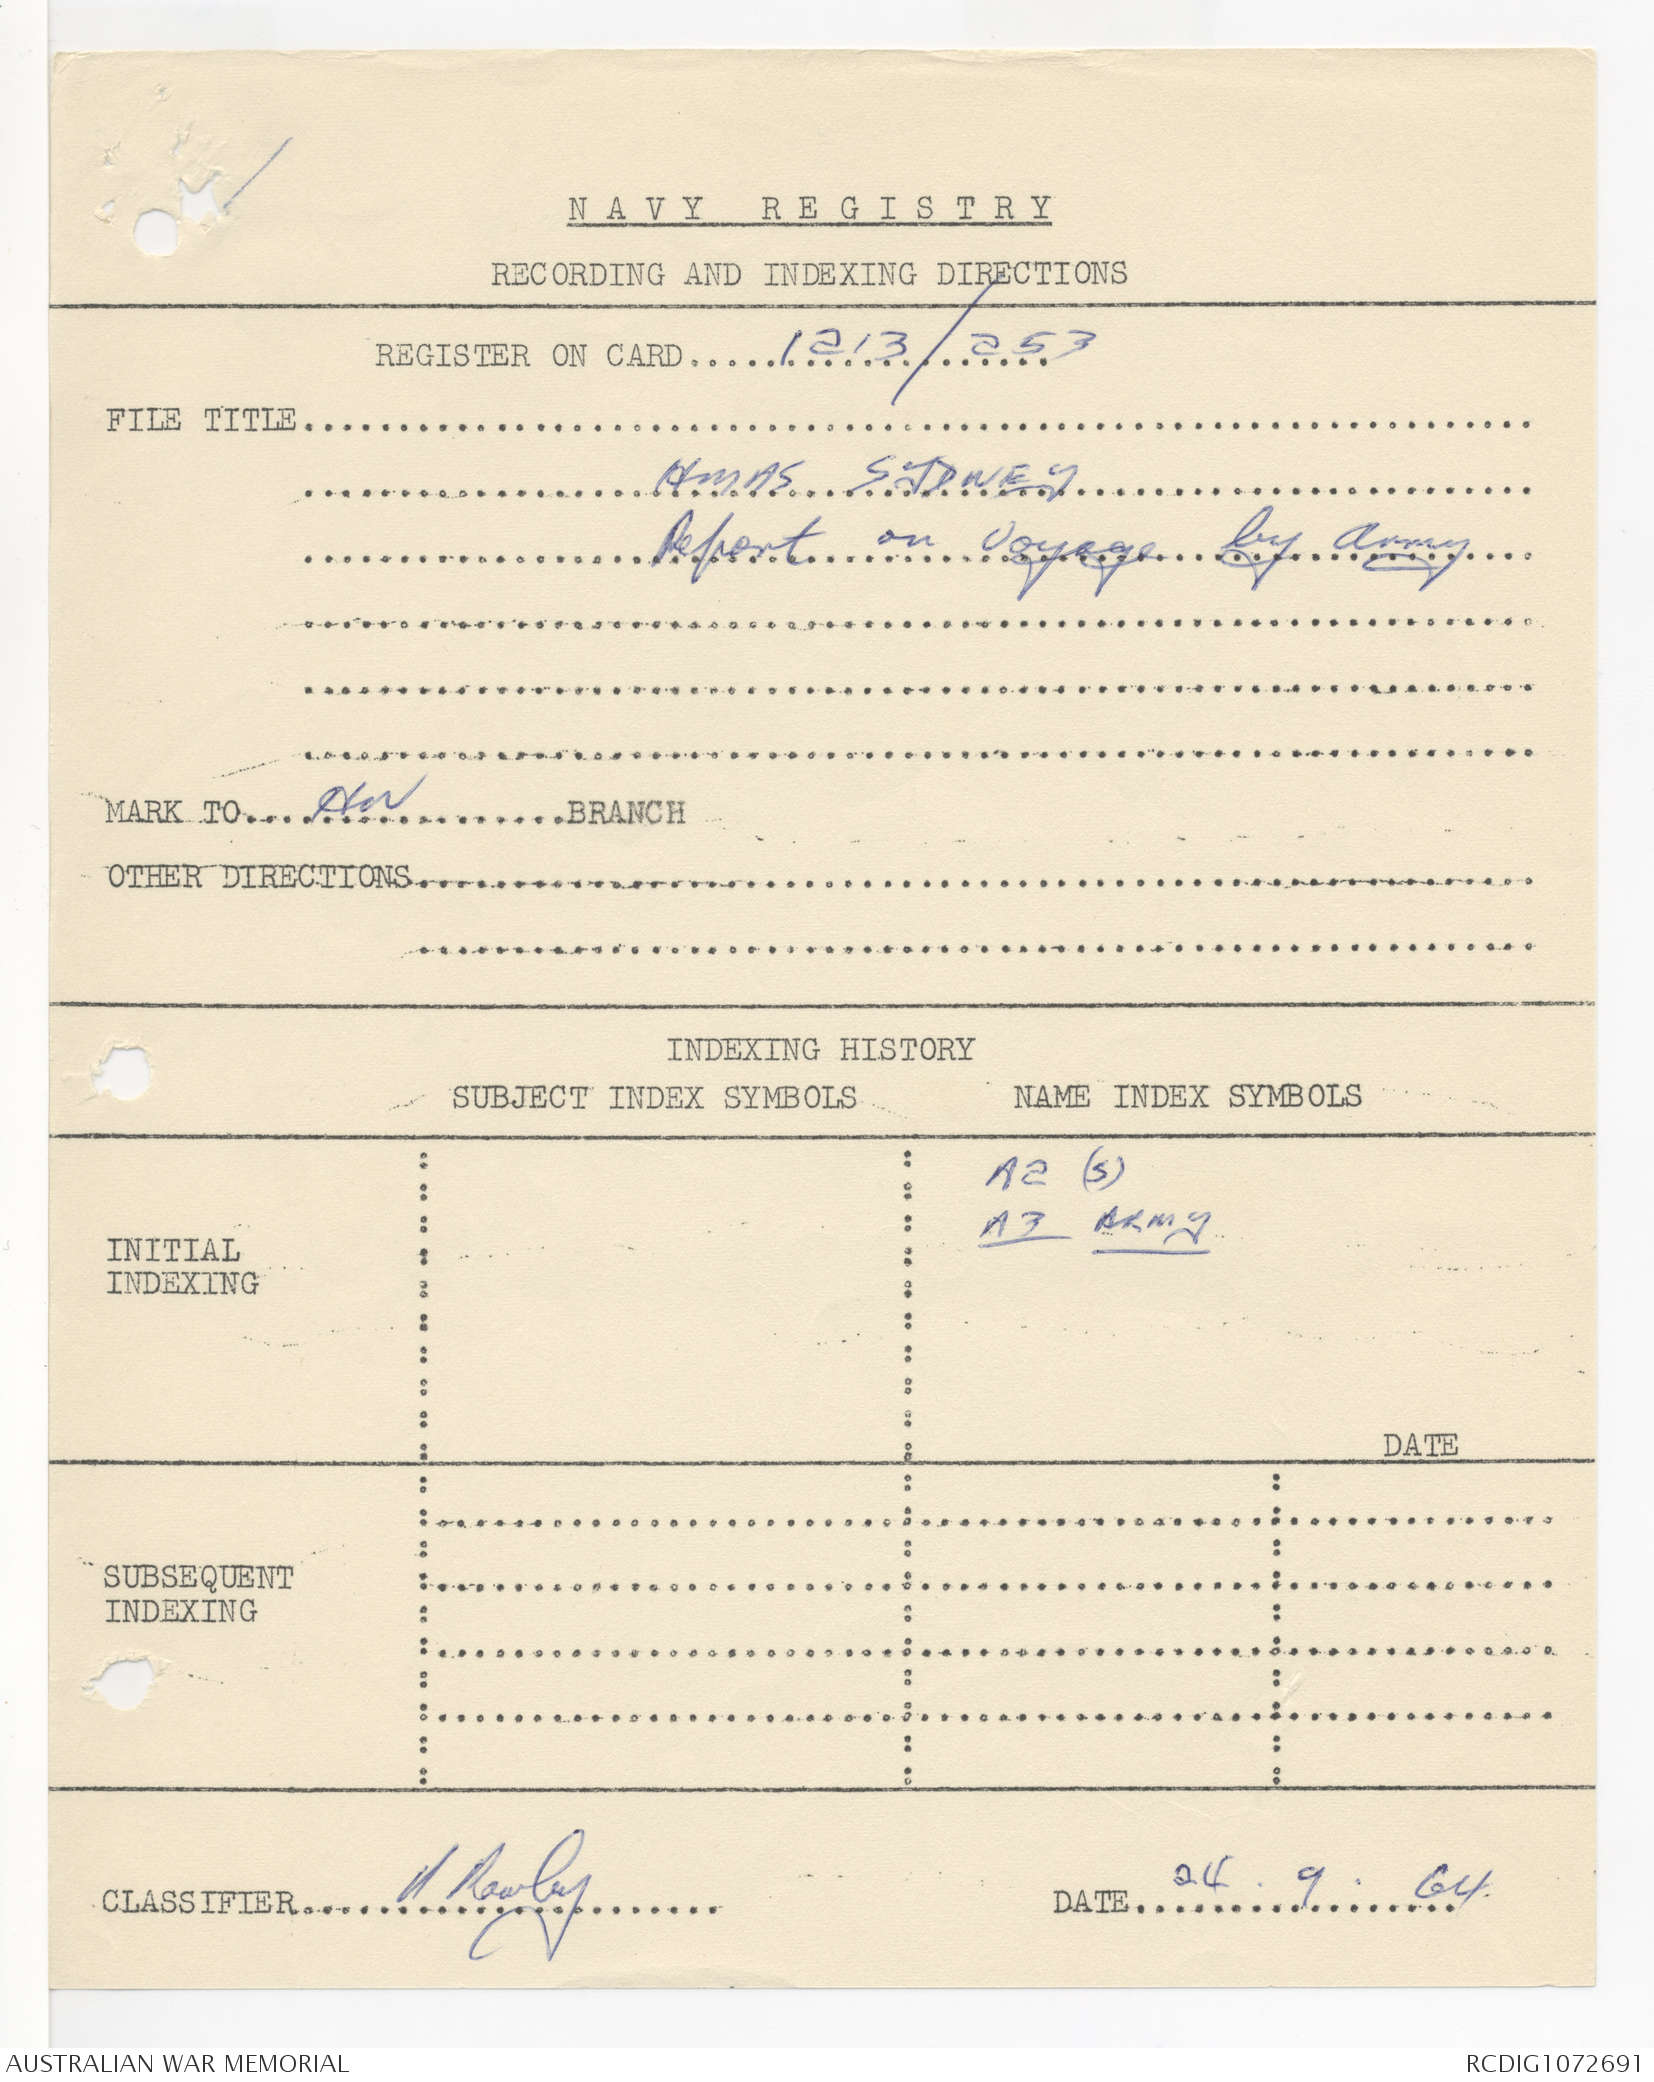 NAVY REGISTRY
RECORDING AND INDEXING DIRECTIONS
REGISTER ON CARD.....1213/253
FILE TITLE
HMAS SYDNEY
Report on Voyage by Army
MARK TO.... ....BRANCH
OTHER DIRECTIONS
INDEXING HISTORY
SUBJECT INDEX SYMBOLS NAME INDEX SYMBOLS
A2 (S)
A3 ARMY
INITIAL
INDEXING
DATE
SUBSEQUENT
INDEXING
CLASSIFIER.... DATE....24. 9. 64.
AUSTRALIAN WAR MEMORIAL RCDIG1072691